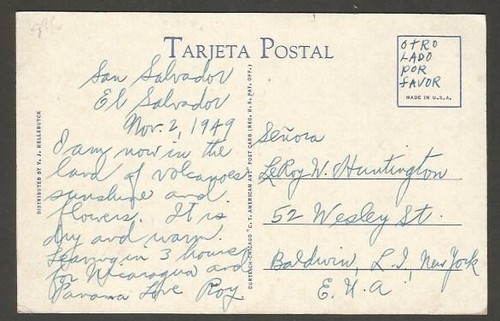 TARJETA POSTAL
OTRO
LADO
POR
FAVOR
MADE IN U.S.A.
San Salvador
El Salvador
Nov. 2, 1949
I am now in the
land of volcanoes
sunshine and
flowers. It is
dry and warm.
Leaving in 3 hours
for Nicaragua and
Panama Love Roy
Señora
LeRoy W. Huntington
52 Wesley St.
Baldwin, L.I., New York
E.U.A.
DISTRIBUTED BY V. J. HELLEBUYCK
CURTEICH-CHICAGO "C.T. AMERICAN ART" POST CARD (REG. U.S. PAT. OFF.)